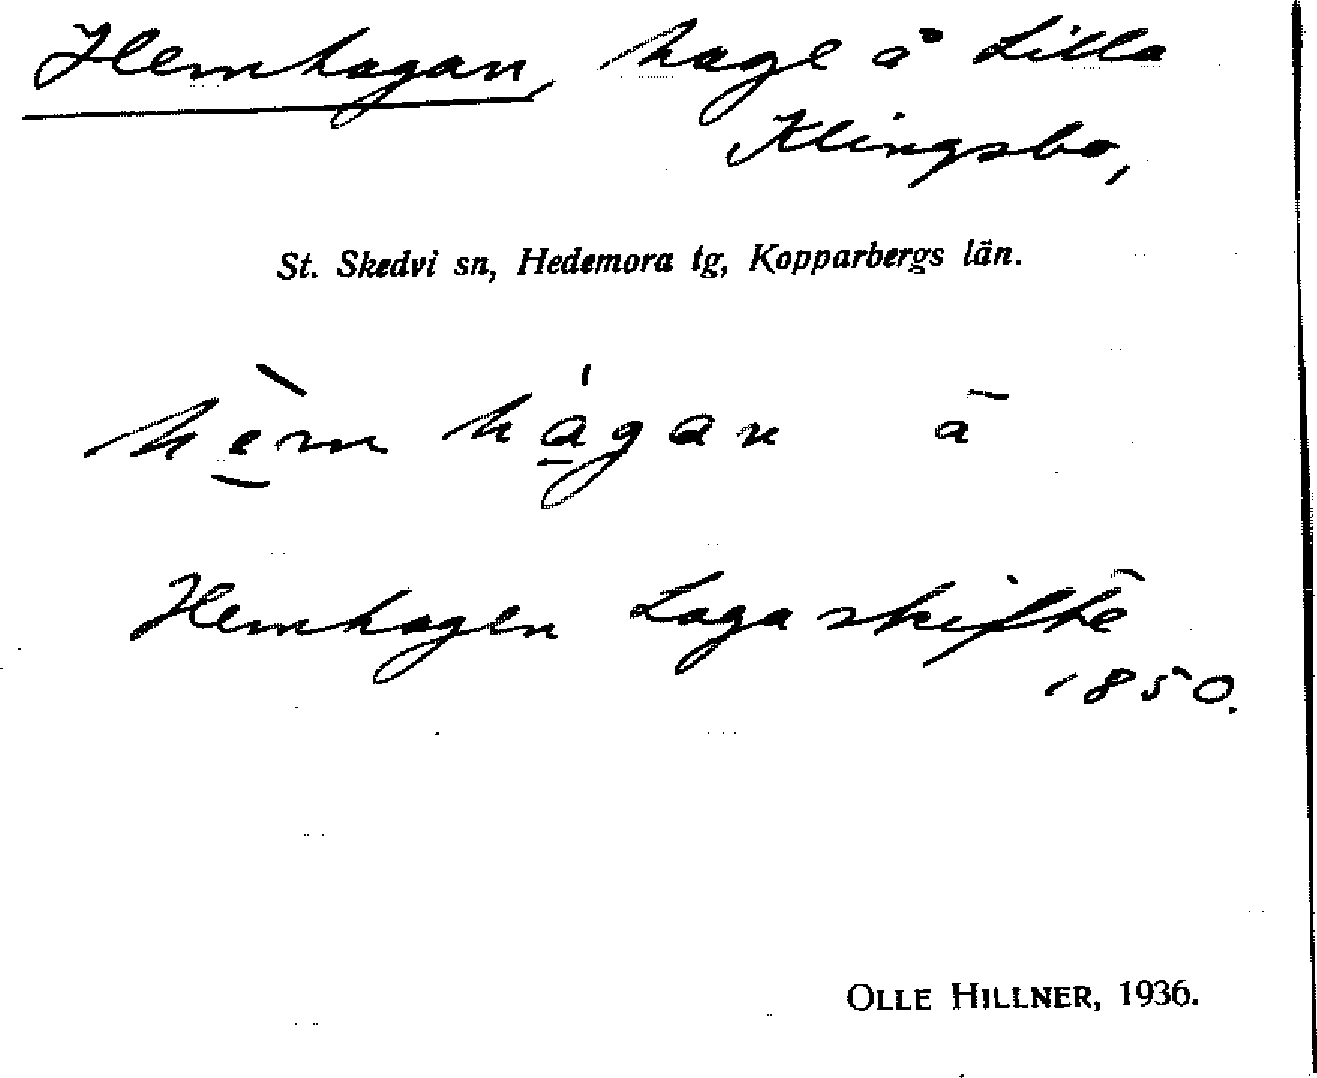 Hemhagan, hage å Lilla
Klingsbo,
St. Skedvi sn, Hedemora tg, Kopparbergs län.
hè̠m há̠gan ā
Hemhagen Laga skifte
1850.
OLLE HILLNER, 1936.